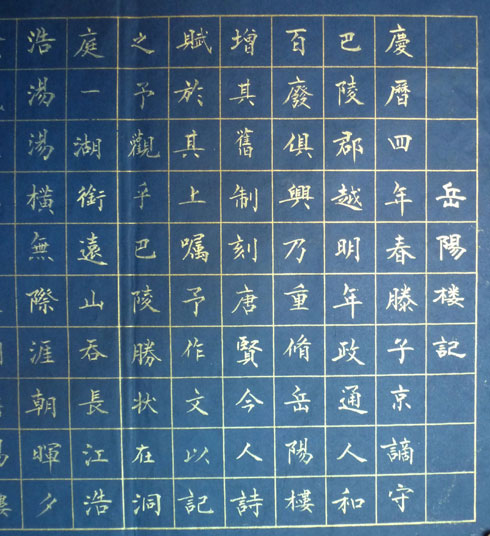 岳陽楼記
慶曆四年春滕子京謫守
巴陵郡越明年政通人和
百廢俱興乃重脩岳陽樓
增其舊制刻唐賢今人詩
賦於其上嘱予作文以記
之予觀乎巴陵勝状在洞
庭一湖銜遠山吞長江浩
浩湯湯橫無際涯朝暉夕